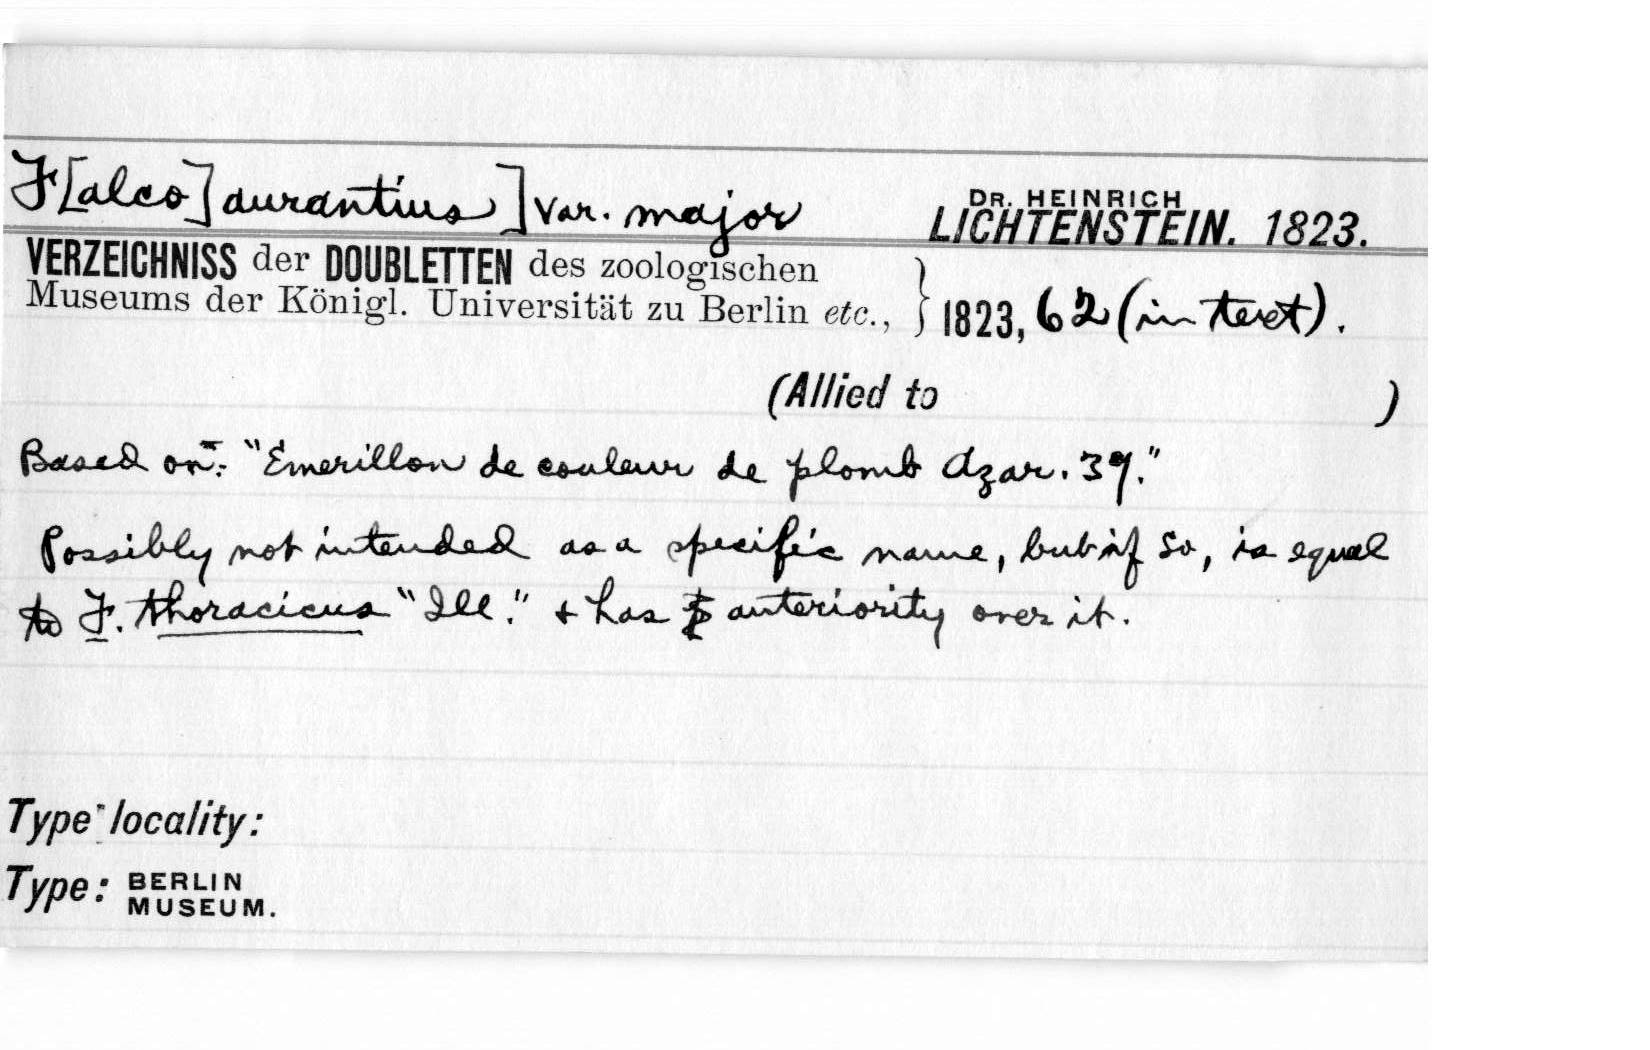 F[alco] aurantius] var. major DR. HEINRICH LICHTENSTEIN. 1823.
VERZEICHNISS der DOUBLETTEN des zoologischen
Museums der Königl. Universität zu Berlin etc., } 1823, 62 (in text).
(Allied to )
Based on:- "Emerillon de couleur de plomb Azar. 39."
Possibly not intended as a specific name, but if so, is equal
to F. thoracicus "Ill." + has anteriority over it.
Type locality:
Type: BERLIN
MUSEUM.